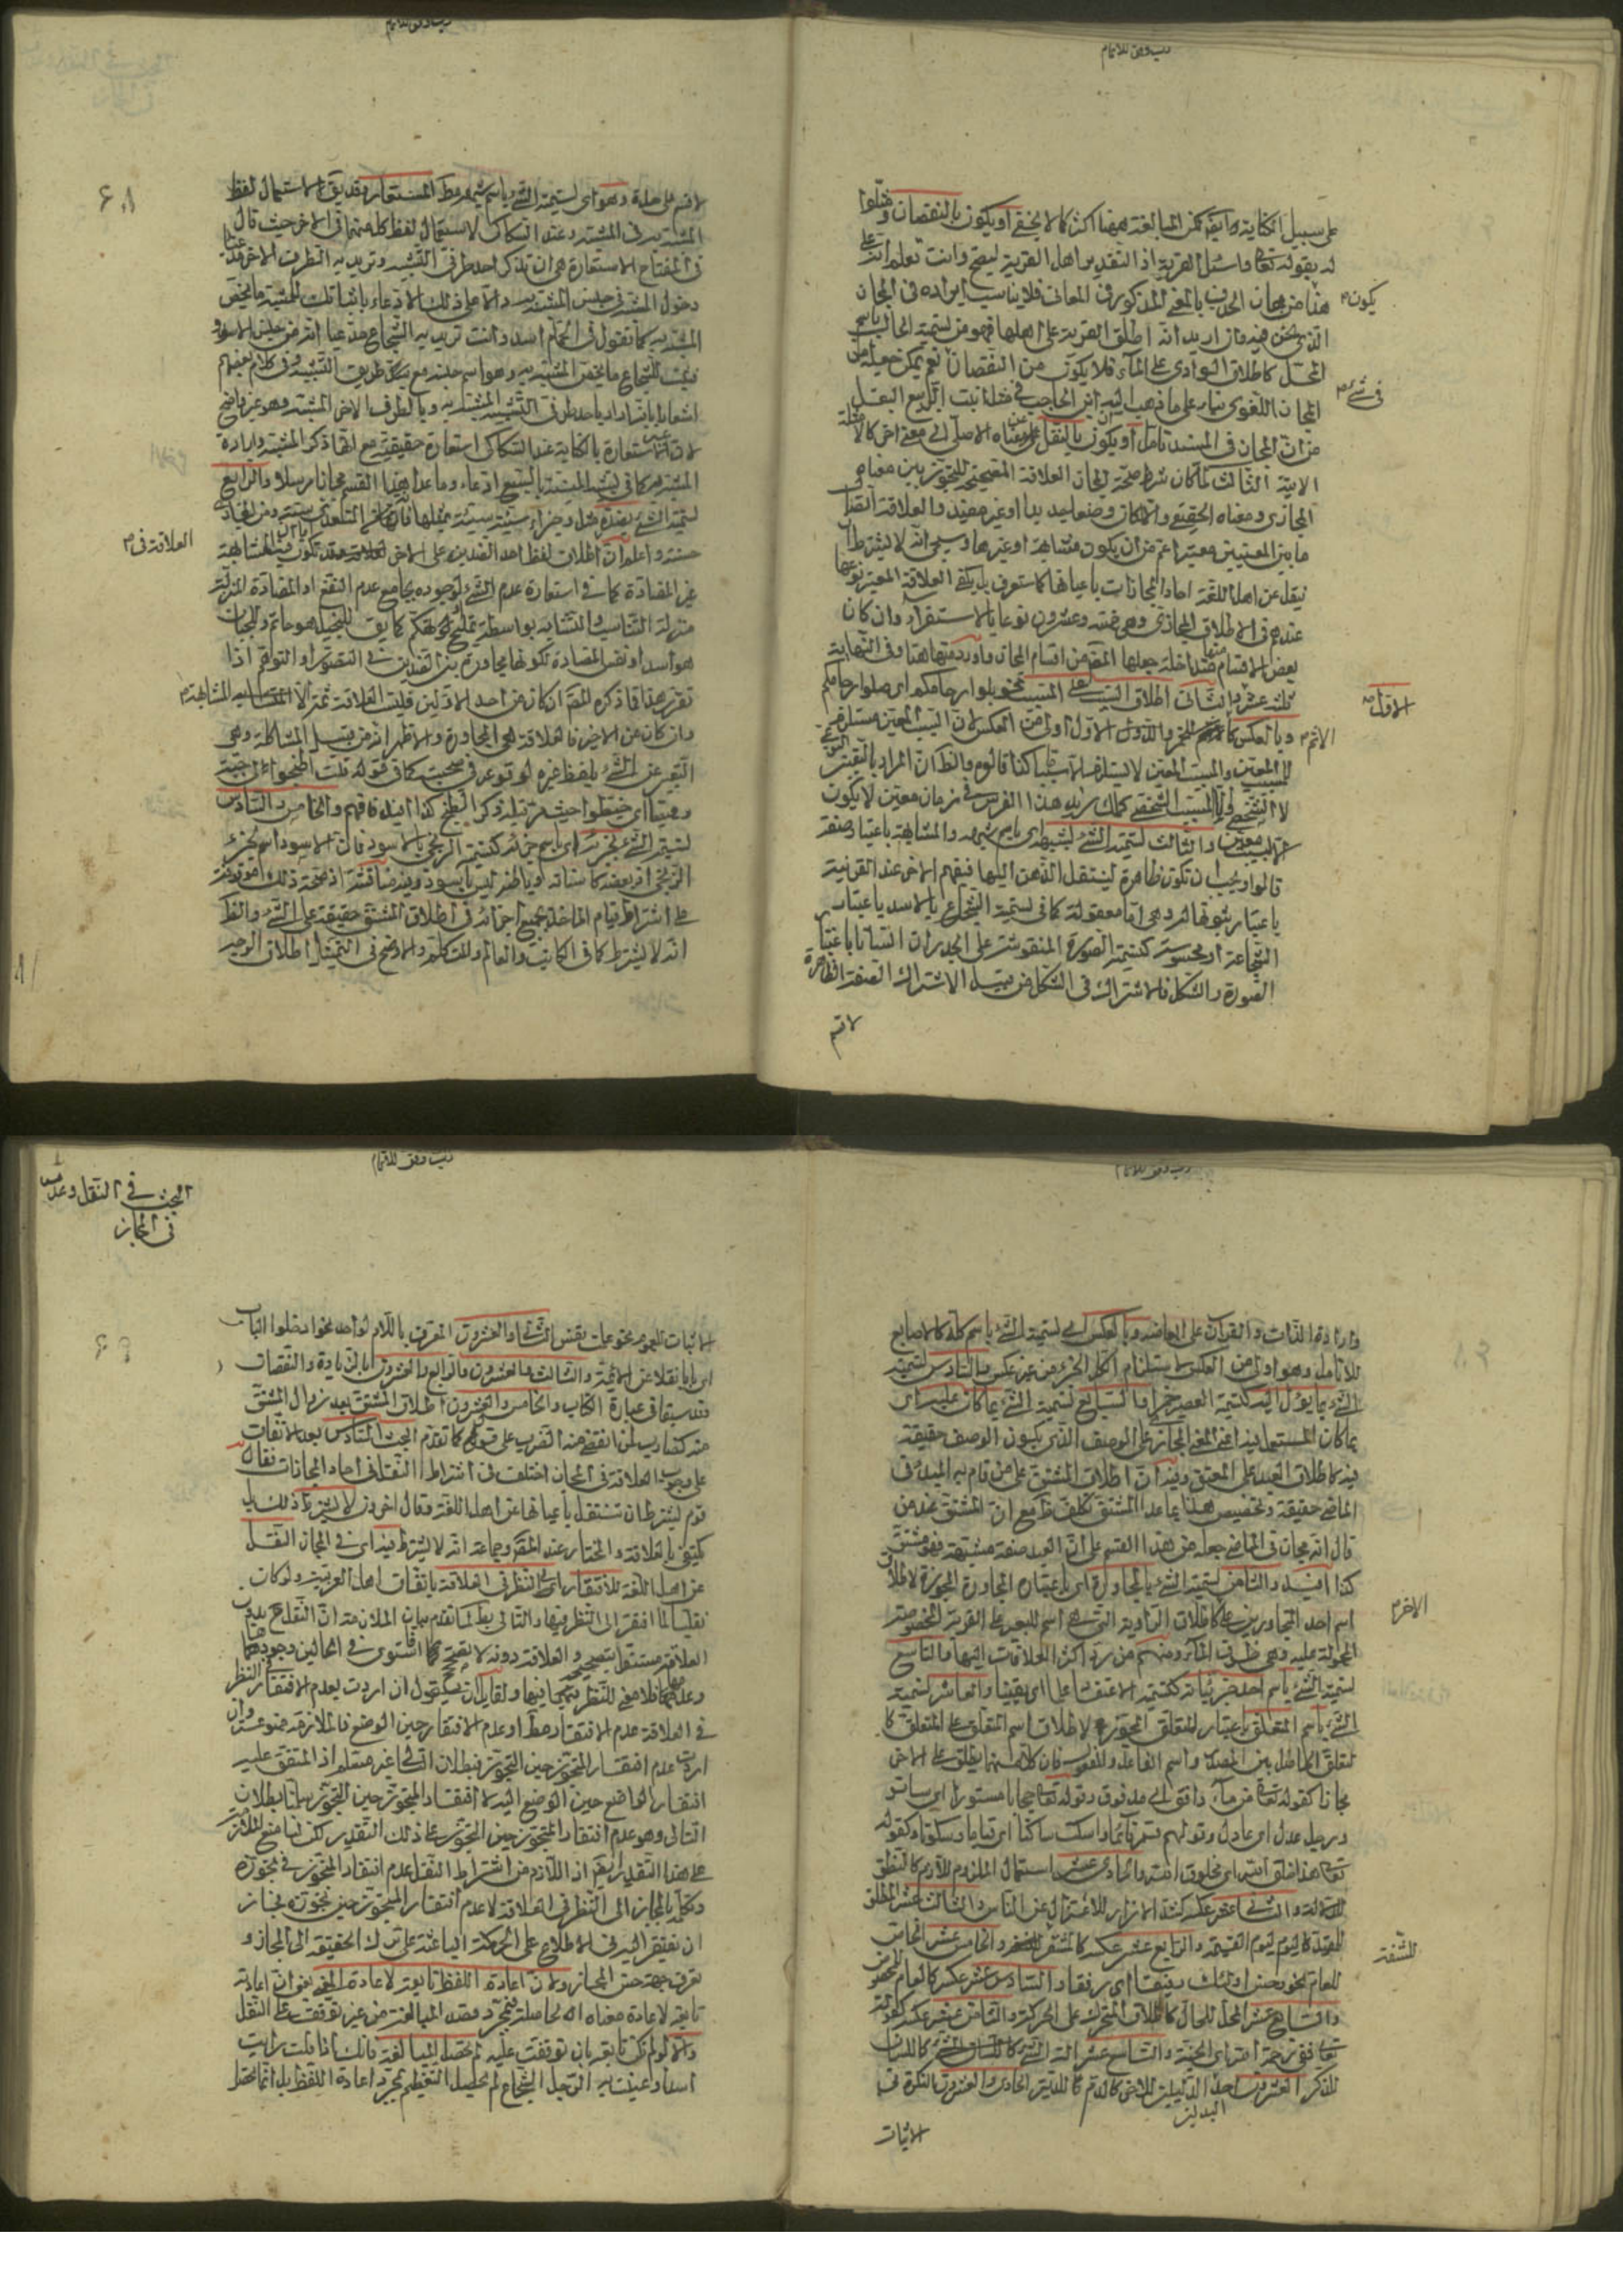 على سبيل الكناية وايضا كمن المبالغة ههنا اكثر كما لا يخفى او يكون بالنقصان ومثلوا
له بقوله تعالى واسئل القرية اذ التقدير اهل القرية ليصح وانت تعلم ان
هذا من مجاز الحذف بالمعنى المذكور في المعاني فلا يناسب ايراده في المجاز
الذي نحن فيه وان اريد انه اطلق القرية على اهلها فهو من تسمية الحال باسم
المحل كاطلاق الوادي على الماء فلا يكون من النقصان نعم يمكن جعله من
المجاز اللغوي بناء على ما ذهب اليه ابن الحاجب في مثل انبت الربيع البقل
من ان المجاز في المسند تأمل او يكون بالنقل عن معناه الاصلي الى معنى اخر كالامثلة
الاتية الثالث لما كان شرط صحة المجاز العلاقة المصححة للتجوز بين معناه
المجازي ومعناه الحقيقي والا لكان وضعا جديدا او غير مفيد والعلاقة اتصال
ما بين المعنيين معتبر اعم من ان يكون مشابهة او غيرها وسيجئ انه لا يشترط ان
ينقل عن اهل اللغة احاد المجازات باعيانها كما ستعرف بل يكفي العلاقة المعتبر نوعها
عندهم في الاطلاق المجازي وهي خمسة وعشرون نوعا بالاستقراء وان كان
بعض الاقسام منها متداخلة جعلها المصـ من اقسام المجاز واورد منها هنا وفي النهاية
ثلثة عشر الثاني اطلاق السبب على المسبب نحو بلوا ارحامكم اى صلوا ارحامكم
وبالعكس كالاثم للخمر والاول اولى من العكس لان السبب المعين مستلزم
للمسبب المعين والمسبب المعين لا يستلزم سببا كذا قالوه والظ ان المراد بالتعين النوعي
لا الشخصي
المعين والثالث تسمية الشئ بشبهه اى باسم شبهه والمشابهة باعتبار صفة
قالوا ويجب ان تكون ظاهرة لينتقل الذهن اليها فيفهم الاخر عند القرينة
باعتبار ثبوتها له وهي اما معقولة كما في تسمية الشجاع بالاسد باعتبار
الشجاعة او محسوسة كتسمية الصورة المنقوشة على الجدران انسانا باعتبار
الصورة والشكل فالاشتراك في الشكل من قبيل الاشتراك الصفة الظاهرة
لا قسم
يكون
في شئ
الاول
الاثم
لا قسم على حدة وهو اى تسمية الشئ باسم شبهه فقط المستعار وقد يق لاستعمال لفظ
المشبه به في المشبه وعند السكاكي لاستعمال لفظ كل منهما في الاخر حيث قال
في المفتاح الاستعارة هي ان تذكر احد طرفي التشبيه وتريد به الطرف الاخر مدعيا
دخول المشبه في جنس المشبه به دالا على ذلك الادعاء باثباتك للمشبه ما يخص
المشبه به كما تقول في الحمام اسد وانت تريد به الشجاع مدعيا انه من جنس الاسود
فتثبت للشجاع ما يخص المشبه به وهو اسم جنسه مع سد طريق التشبيه وفي كلام بعضهم
اشعار بانه اراد باحد طرفي التشبيه المشبه به وبالطرف الاخر المشبه وهو غير واضح
لان الاستعارة بالكناية عند السكاكي استعارة حقيقية مع انها ذكر المشبه وارادة
المشبه به كما في تشبيه المنية بالسبع ادعاء وما عدا هذا القسم مجازا مرسلا والرابع
تسمية الشئ بضده مثل وجزاء سيئة سيئة مثلها
حسنة واعلم ان اطلاق لفظ احد الضدين على الاخر قد تكون المشابهة
غير المضادة كما في استعارة عدم الشئ لوجوده بجامع عدم النفع او المضادة المنزلة
منزلة التناسب والتشابه بواسطة تمليح او تهكم كما يق للبخيل هو حاتم وللجبان
هو اسد او نفس المضادة تكونها مجاورتهم بين الضدين في التصور او التوهم اذا
تقرر هذا فما ذكره المصـ ان كان من احد الاولين فليست العلاقة ثمة الا المشابهة
وان كان من الاخير فالعلاقة هي المجاورة والاظهر انه من قبيل المشاكلة وهي
التعبير عن الشئ بلفظ غيره لوقوعه في صحبته كما في قوله قلت اطبخوا لي جبة
وقميصا اى خيطوا حيث عبر به لذكر الطبخ كذا افيد فافهم والخامس والسادس
تسمية الشئ بجزئه اى باسم جزئه كتسمية الزنجي بالاسود فان الاسود اسم لجزء
الزنجي اذ بعضه كاسنانه او باطنه ليس باسود وفيه مناقشة اذ صحة ذلك موقوفة
على اشتراط قيام المأخذ بجميع اجزائه في اطلاق المشتق حقيقة على الشئ والظ
انه لا يشترط كما في الكاتب والعالم والمتكلم والاوضح في التمثيل اطلاق الوجه
العلاقة في
وارادة الذات والقران على ابعاضه وبالعكس اى تسمية الشئ باسم كله كالاصابع
للانامل وهو اولى من العكس لاستلزام الكل الجزء من غير عكس والسادس تسمية
الشئ بما يؤل اليه كتسمية العصير خمرا والسابع تسمية الشئ بما كان عليه اى
بما كان المستعمل فيه اعني المعنى المجازي على الوصف الذي يكون الوصف حقيقة
فيه كاطلاق العبد على المعتق وفيه ان اطلاق المشتق على من قام به المبدء في
الماضي حقيقة وتخصيص هذا بما عدا المشتق تكلف مع ان المشتق عند من
قال انه مجاز في الماضي جعله من هذا القسم على ان العبد صفة مشبهة فهو مشتق
كذا افيد والثامن تسمية الشئ بالمجاورة اى باعتبار المجاورة المجوزة لاطلاق
اسم احد المتجاورين على كاطلاق الراوية التي هي اسم للبعير على القربة المخصوصة
المحمولة عليه وهي ظرف الماء ومنهم من رد اكثر العلاقات اليها والتاسع
تسمية الشئ باسم احد جزئياته كتسمية الاعتقاد علما اى يقينا والعاشر تسمية
الشئ باسم المتعلق باعتبار المتعلق المجوز لاطلاق اسم المتعلق على المتعلق كا
لتعلق الحاصل بين المصدر واسم الفاعل والمفعول فان كلا منها يطلق على الاخر
مجازا كقوله تعالى من ماء دافق اى مدفوق وقوله تعالى حجابا مستورا اى ساترا
ورجل عدل اى عادل وقولهم قم قائما واسكت ساكتا اى قياما وسكوتا وكقوله
تعالى هذا خلق الله اى مخلوق الله والحادي عشر استعمال الملزوم للازم كالنطق
للدلالة والثاني عشر عكسه كشد الازار للاعتزال عن الناس والثالث عشر المطلق
للمقيد كاليوم ليوم القيمة والرابع عشر عكسه كالمشفر والخامس عشر الخاص
للعام نحو حسن اولئك رفيقا اى رفقاء والسادس عشر عكسه كالعام المخصوص
والسابع عشر المحل للحال كاطلاق المتحرك على الحركة والثامن عشر عكسه كقوله
تعالى ففي رحمة الله اى الجنة والتاسع عشر الة الشئ كاللسان
للذكر العشرون احد البدلين للاخر كالدم للدية الحادي والعشرون النكرة في
البدلين
الاثبات
الاخر
للشفة
البحث في النقل وعدمه
في المجاز
الاثبات للعموم نحو علمت نفس الثاني والعشرون المعرف باللام لواحد نحو ادخلوا الباب
اى بابا نقلا عن الائمة والثالث والعشرون والرابع والعشرون بالزيادة والنقصان
وقد سبقا في عبارة الكتاب والخامس والعشرون اطلاق المشتق بعد زوال المشتق
منه كضارب لمن انقضى منه الضرب على قول كما تقدم البحث السادس بعد الاتفاق
على وجوب العلاقة في المجاز اختلف في اشتراط النقل في احاد المجازات فقال
قوم يشترط ان تنقل باعيانها عن اهل اللغة وقال اخرون لا يشترط ذلك بل
يكتفي بالعلاقة والمختار عند المصـ وجماعة انه لا يشترط فيه اى في المجاز النقل
عن اهل اللغة للافتقار الى النظر في العلاقة باتفاق اهل العربية ولو كان
نقليا لما افتقر الى النظر فيها والتالي بط لما تقدم بيان الملازمة ان النقل بدون
العلاقة مستقل بتصحيحه والعلاقة دونه لا تصححه فاستوى في الحالين وجودها
وعدمها فلا معنى للنظر فيها ولقائل ان يقول ان اردت بعدم الافتقار النظر
في العلاقة عدم الافتقار مطلقا او عدم الافتقار حين الوضع فالملازمة ممنوعة وان
اردت عدم افتقار المتجوز حين التجوز فبطلان التالي غير مسلم اذ المتفق عليه
افتقار الواضع حين الوضع اليه لا افتقار المتجوز حين التجوز سلمنا بطلان
التالي وهو عدم افتقار المتجوز حين التجوز على ذلك التقدير لكن لنا منع الملازمة
على هذا التقدير ايضا اذ اللازم من اشتراط النقل عدم افتقار المتجوز في تجوزه
وتكلمه بالمجاز الى النظر في العلاقة لا عدم افتقار المتجوز حين تجوزه فجاز
ان يفتقر اليه في الاطلاع على الحكمة الباعثة على ترك الحقيقة الى المجاز و
تعرف جهة حسن المجاز ولان اعادة اللفظ تابعة لاعادة المعنى
تابعة لاعادة معناه الة حاصلة بمجرد قصد المبالغة من غير توقف على النقل
والا لو لم تكن تابعة بان توقفت عليه لم تحصل المبالغة فانك اذا قلت رايت
اسدا وعنيت به الرجل الشجاع لم تحصل التعظيم بمجرد اعادة اللفظ بل انما تحصل